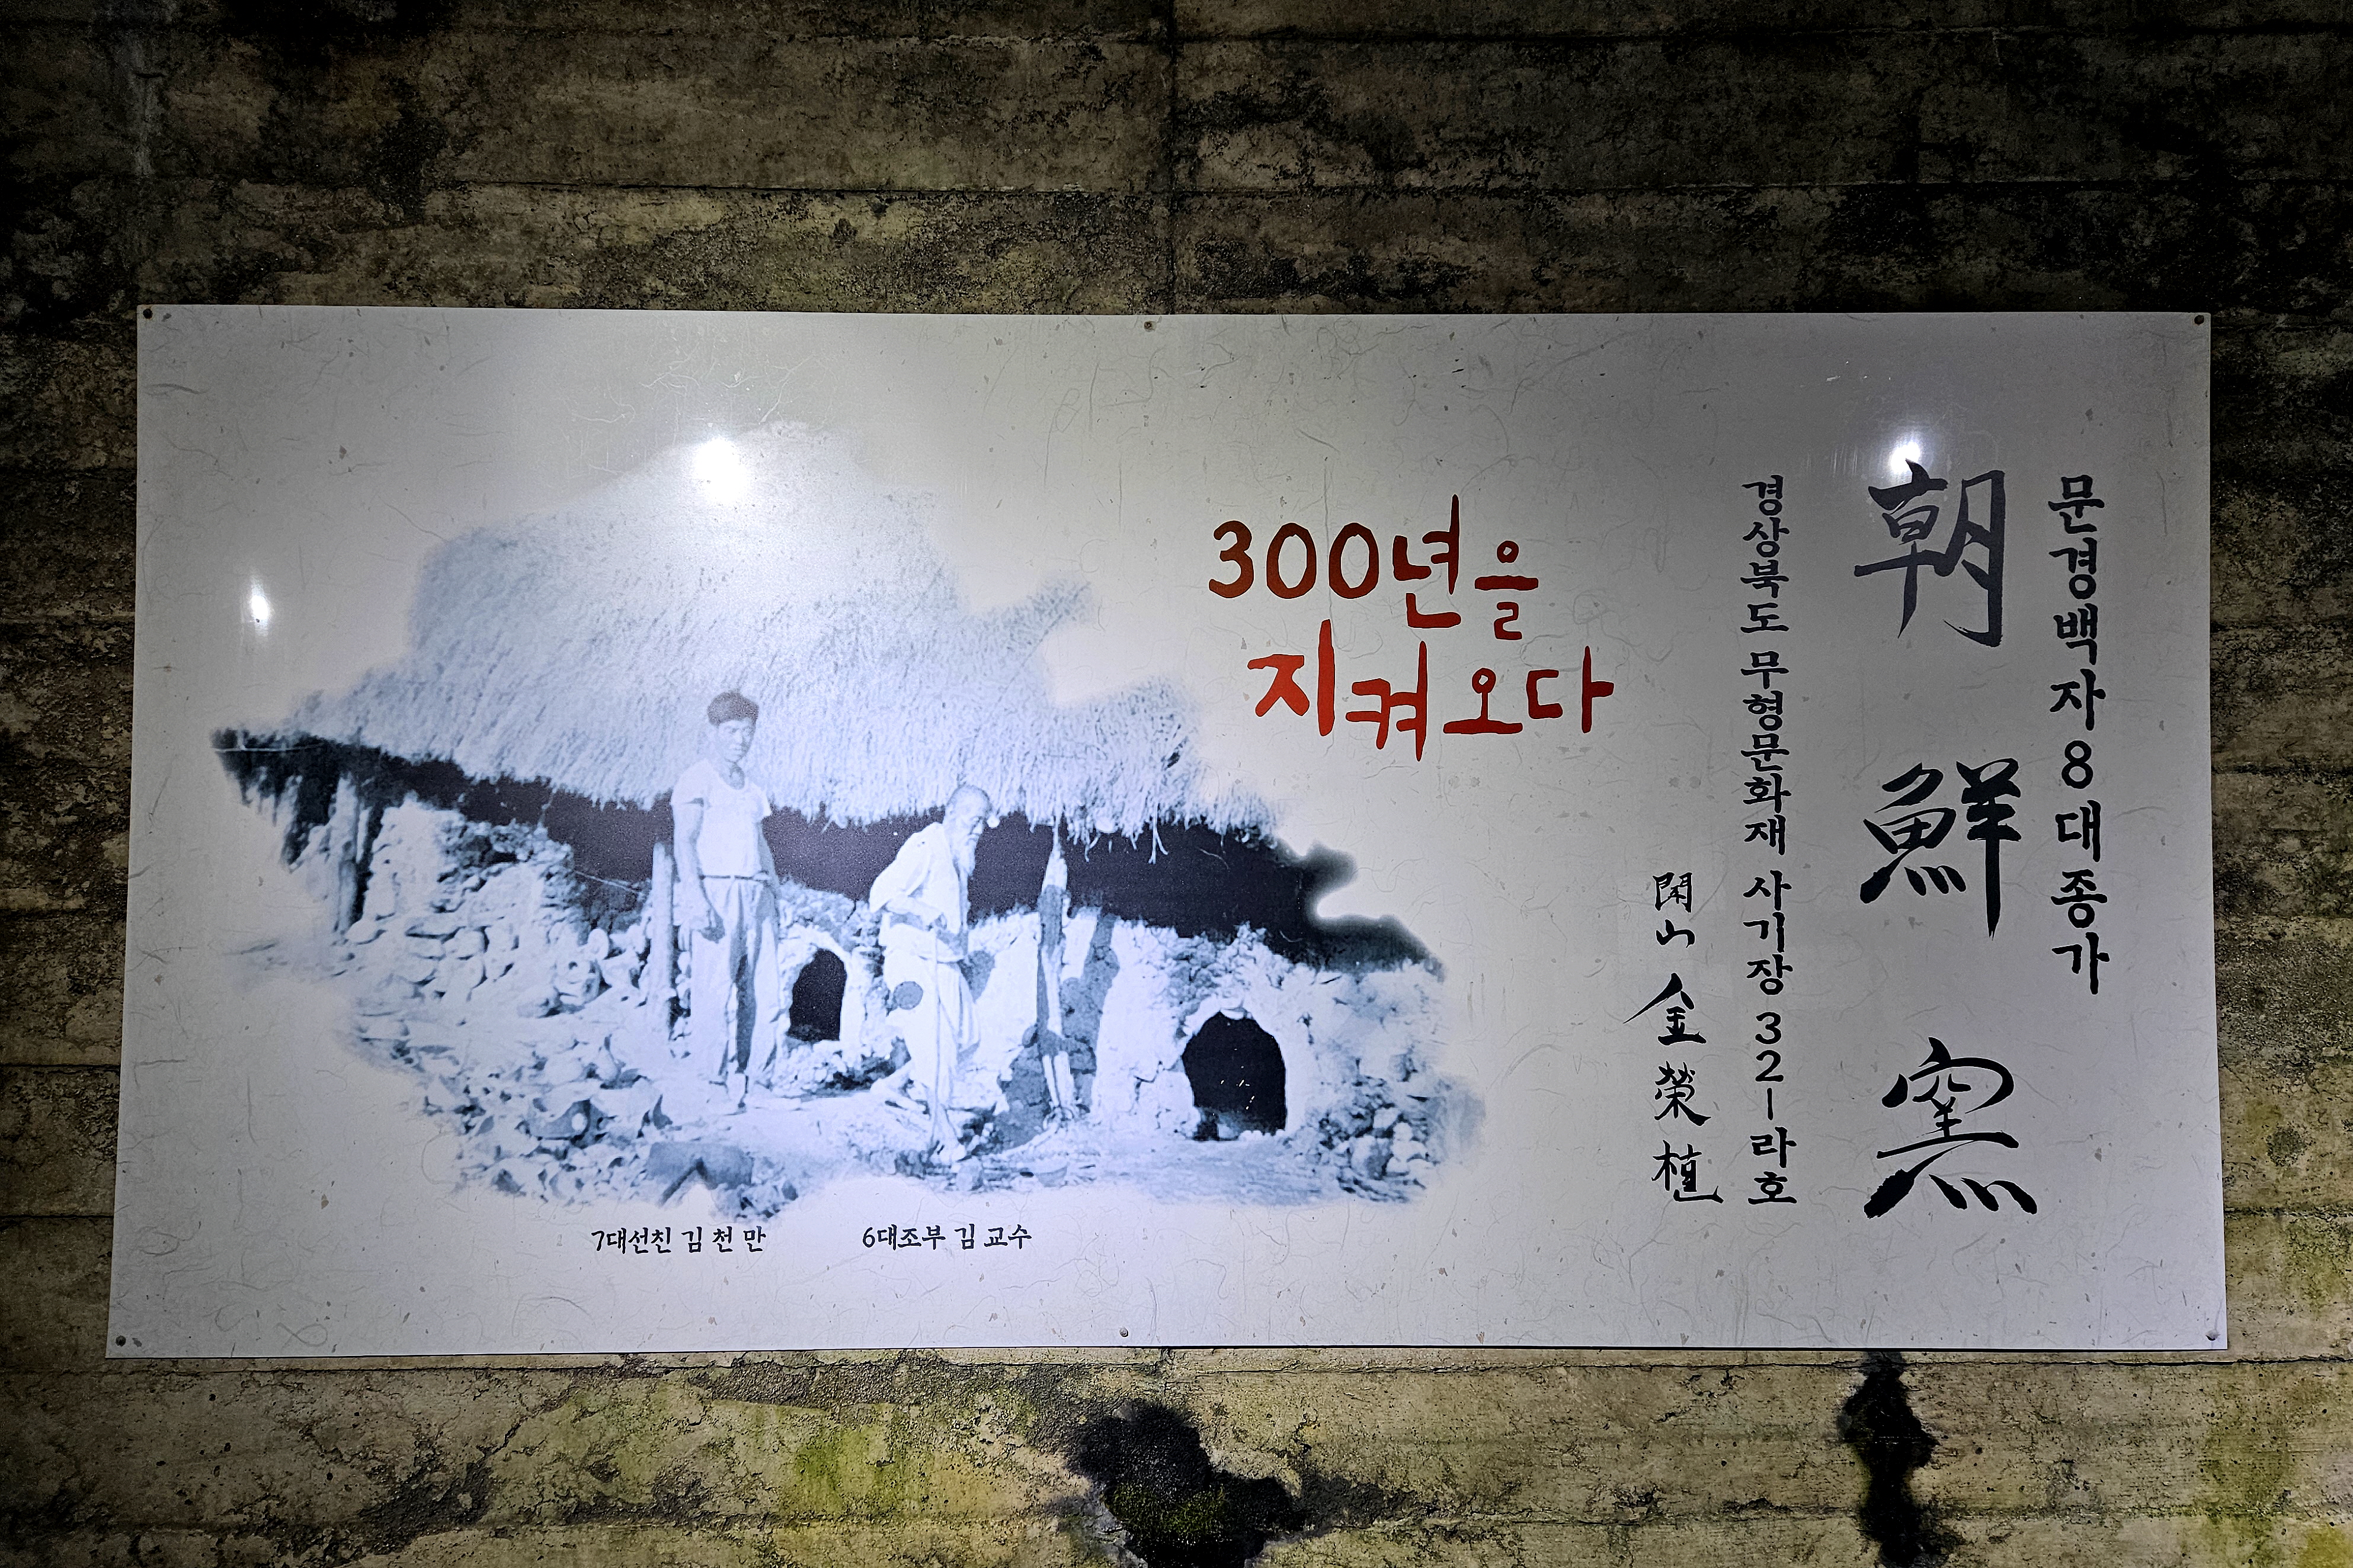 문경백자8대종가
朝鮮窯
경상북도 무형문화재 사기장 32-라호
閑山 金榮植
300년을
지켜오다
7대선친 김천만
6대조부 김교수